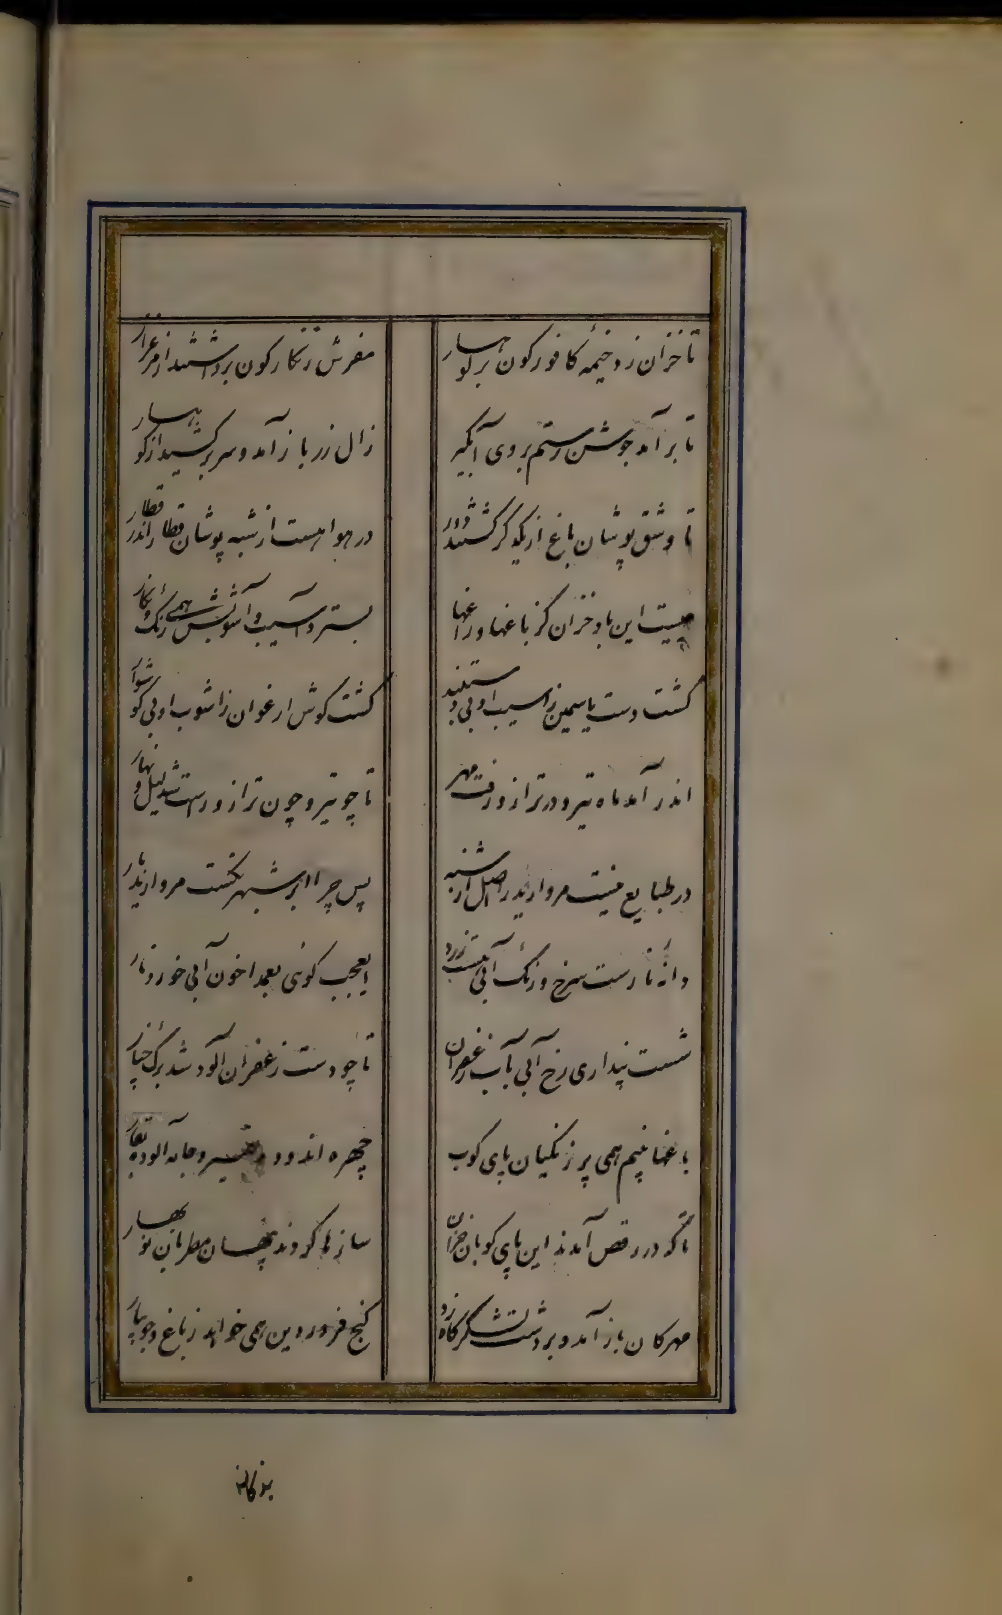 تا خزان زد خیمهٔ کافور کون بر کوهسار
مفرش زنکار کون برداشتند از مرغزار
تا برآمد جوشن رستم بروی آبگیر
زال زر باز آمد و سر برکشید از کوهسار
تا وشق پوشان باغ از یکدکر کشتند دور
در هوا هست از شبه پوشان قطار اندر قطار
چیست این باد خزان کز باغها و راغها
بسترد آسیب و آشوبش همی رنک و نکار
کشت دست یاسمین ز آسیب او بی دستبند
کشت کوش ارغوان ز آشوب او بی کوشوار
اندر آمد ماه تیر و در ترازو رفت مهر
تا چو تیر و چون ترازو راست شد لیل و نهار
در طبایع نیست مروارید را اصل از شبه
پس چرا ابر شبه رنکست مروارید بار
دانهٔ نارست سرخ و رنک آبی هست زرد
ایعجب کوئی بعمدا خون آبی خورد نار
شست پنداری رخ آبی بآب زعفران
تا چو دست زعفران آلود شد برک چنار
باغها بینم همی پر زنکیان پای کوب
چهره اندوده بقیر و جامه آلوده بقار
تا که در رقص آمدند این پای کوبان خزان
سازها کردند پنهان مطربان نو بهار
مهرکان باز آمد و بر دشت لشکرکاه زد
کنج فروردین همی خواهد ز باغ و جویبار